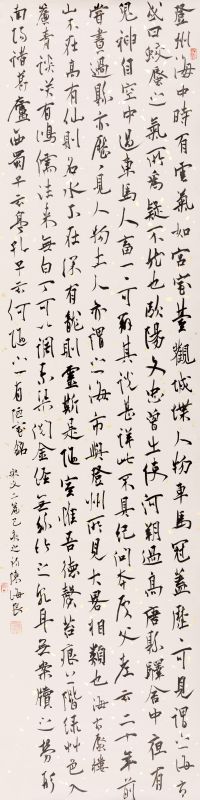 登州海中時有雲氣如宮室臺觀城堞人物車馬冠蓋歷歷可見謂之海市
或曰蛟蜃之氣所為疑不然也歐陽文忠曾出使河朔過高唐縣驛舍中夜有
鬼神自空中過車馬人畜一一可辨其說甚詳此不具紀問本處父老云二十年前
嘗晝過縣亦歷見人物土人亦謂之海市與登州所見大略相類也 海市蜃樓
山不在高有仙則名水不在深有龍則靈斯是陋室惟吾德馨苔痕上階綠草色入
簾青談笑有鴻儒往來無白丁可以調素琴閱金經無絲竹之亂耳無案牘之勞形
南陽諸葛廬西蜀子雲亭孔子云何陋之有 陋室銘